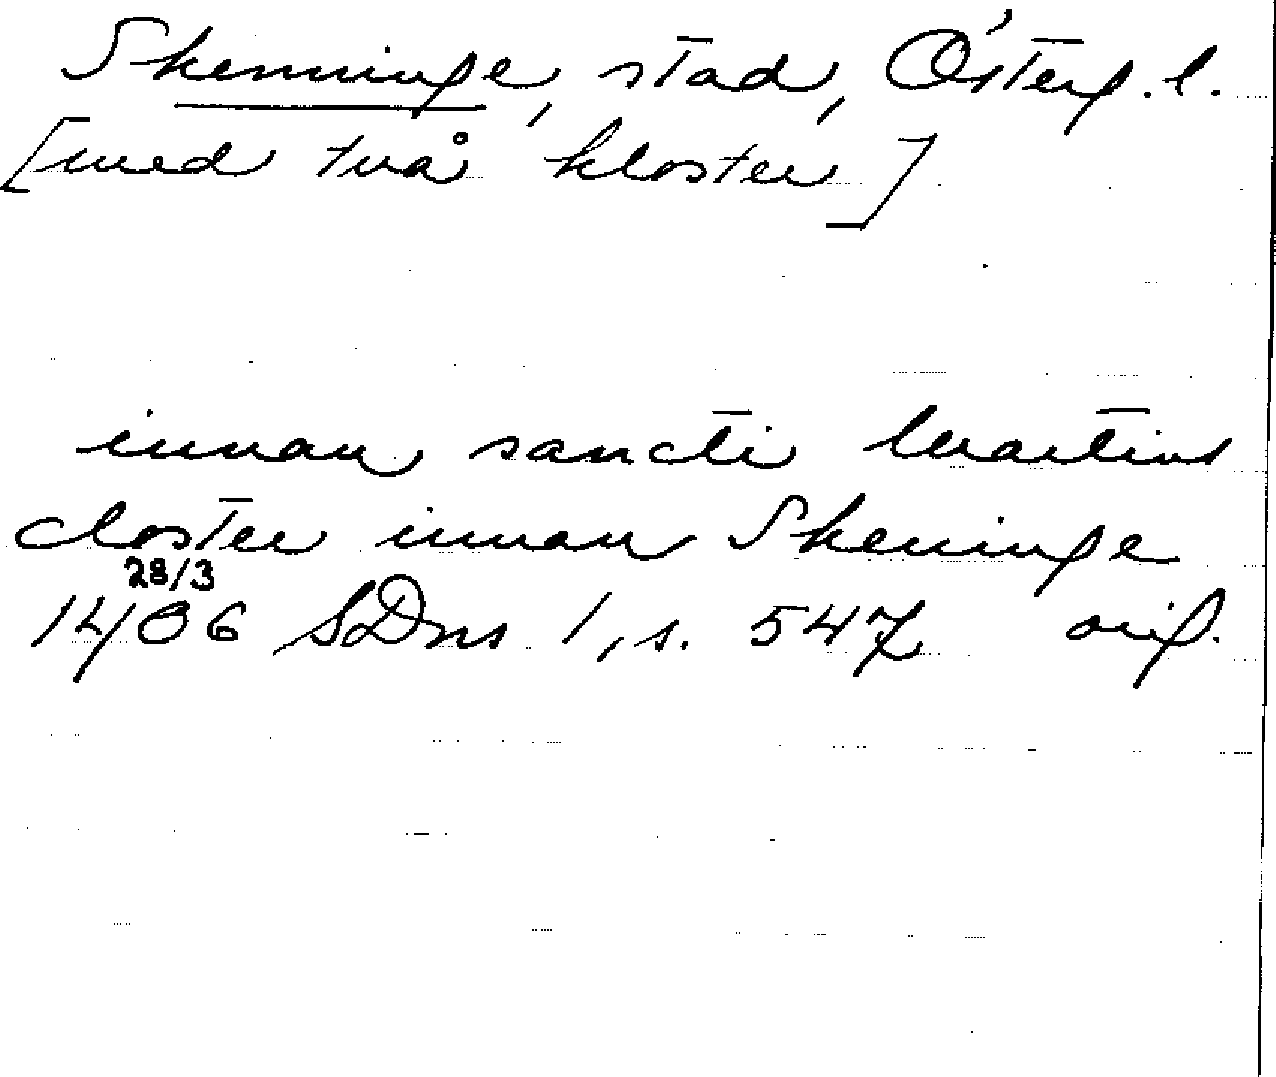 Skenninge, stad, Österg. l.
[med två kloster]
innan sancti Martins
closter innan Skeninge
28/3
1406 SDns 1, s. 547 orig.